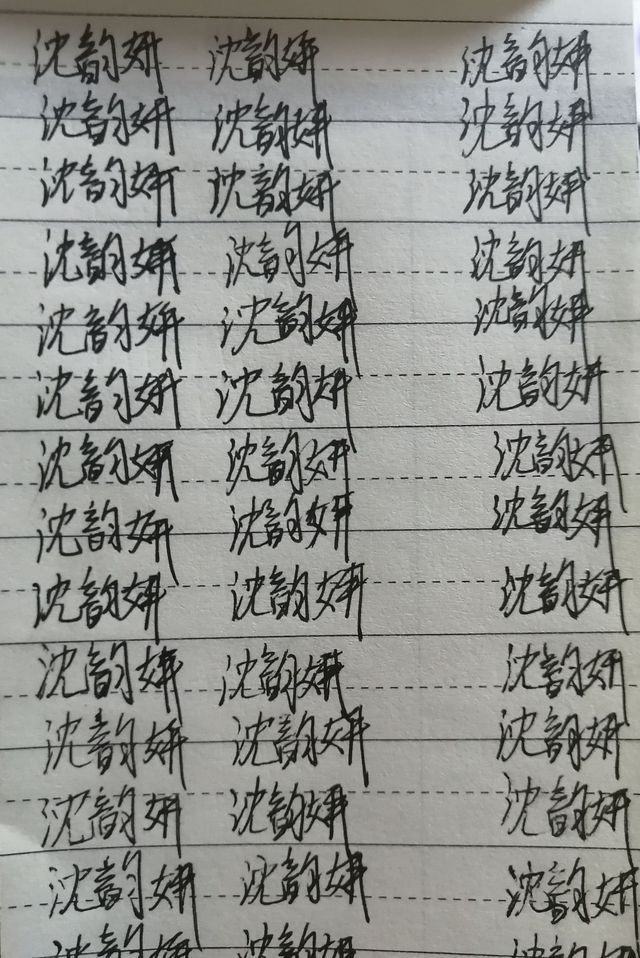 沈韵妍 沈韵妍 沈韵妍
沈韵妍 沈韵妍 沈韵妍
沈韵妍 沈韵妍 沈韵妍
沈韵妍 沈韵妍 沈韵妍
沈韵妍 沈韵妍 沈韵妍
沈韵妍 沈韵妍 沈韵妍
沈韵妍 沈韵妍 沈韵妍
沈韵妍 沈韵妍 沈韵妍
沈韵妍 沈韵妍 沈韵妍
沈韵妍 沈韵妍 沈韵妍
沈韵妍 沈韵妍 沈韵妍
沈韵妍 沈韵妍 沈韵妍
沈韵妍 沈韵妍 沈韵妍
沈韵妍 沈韵妍 沈韵